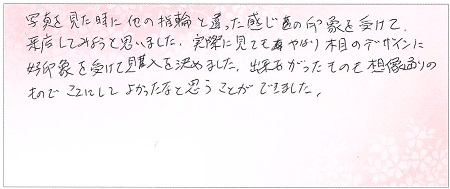 写真を見た時に他の指輪と違った感じの印象を受けて
来店してみようと思いました。実際に見てもやはり木目のデザインに
好印象を受けて購入を決めました。出来あがったものも想像通りの
もので ここにして よかったなと思うことができました。